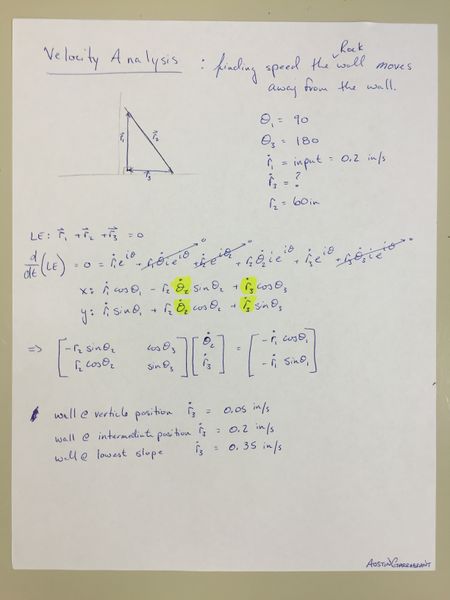 Velocity Analysis : finding speed the wall moves
Rock
away from the wall.
θ₁ = 90
θ₃ = 180
ṙ₁ = input = 0.2 in/s
ṙ₃ = ?
r₂ = 60in
r⃗₁ r⃗₂
r⃗₃
LE: r⃗₁ + r⃗₂ + r⃗₃ = 0
d/dt (LE) = 0 = ṙ₁e^iθ + r₁θ̇₁ie^iθ + ṙ₂e^iθ₂ + r₂θ̇₂ie^iθ + ṙ₃e^iθ + r₃θ̇₃ie^iθ
x: ṙ₁ cosθ₁ - r₂ θ̇₂ sinθ₂ + ṙ₃ cosθ₃
y: ṙ₁ sinθ₁ + r₂ θ̇₂ cosθ₂ + ṙ₃ sinθ₃
=> [-r₂ sinθ₂ cosθ₃] [θ̇₂] = [-ṙ₁ cosθ₁]
[r₂ cosθ₂ sinθ₃] [ṙ₃] [-ṙ₁ sinθ₁]
wall @ verticle position ṙ₃ = 0.05 in/s
wall @ intermediate position ṙ₃ = 0.2 in/s
wall @ lowest slope ṙ₃ = 0.35 in/s
Austin Garrabrant